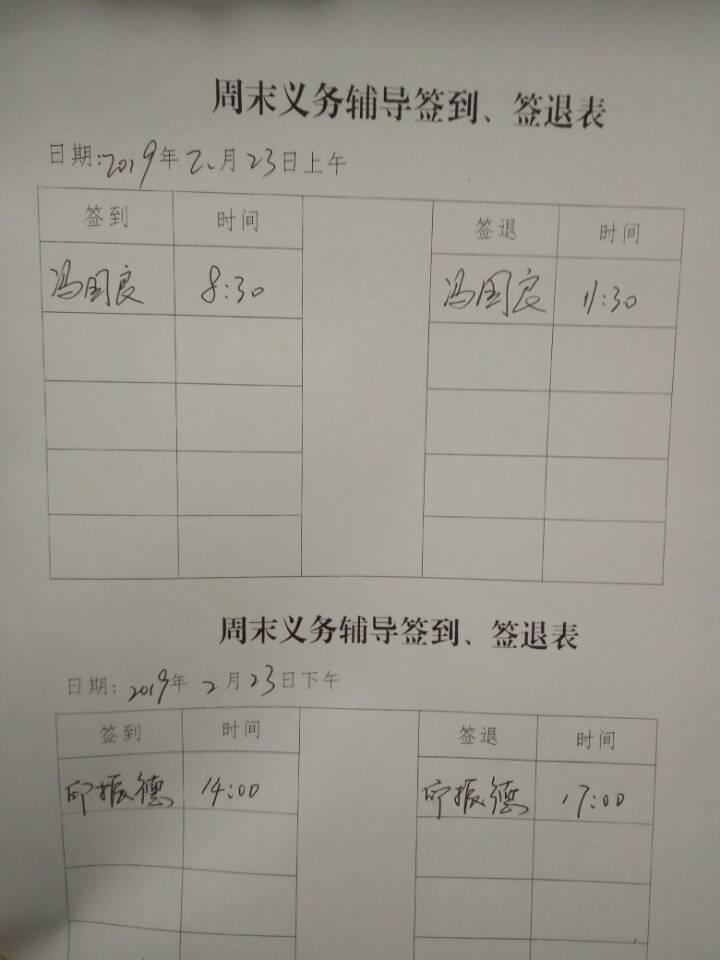 周末义务辅导签到、签退表
日期:2019年2月23日上午
签到 时间 签退 时间
冯国良 8:30 冯国良 11:30
周末义务辅导签到、签退表
日期:2019年2月23日下午
签到 时间 签退 时间
邱振德 14:00 邱振德 17:00